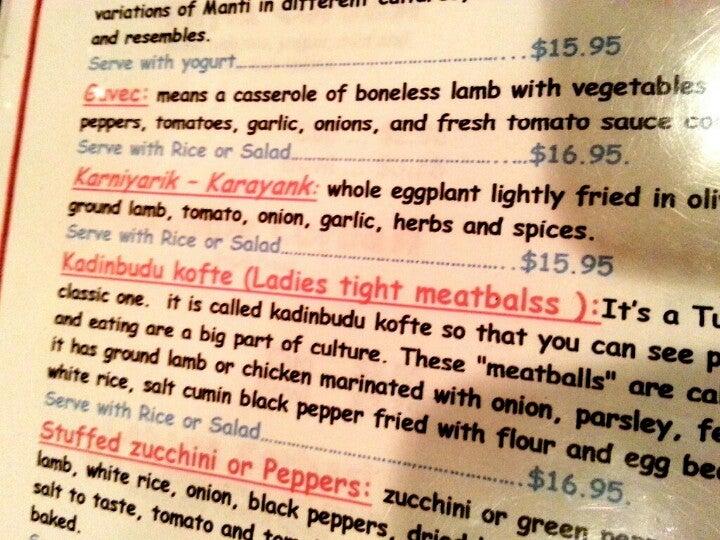 variations of Manti in different
and resembles.
Serve with yogurt.......$15.95
means a casserole of boneless lamb with vegetables
peppers, tomatoes, garlic, onions, and fresh tomato sauce
Serve with Rice or Salad.......$16.95.
Karniyarik - Karayank: whole eggplant lightly fried in
ground lamb, tomato, onion, garlic, herbs and spices.
Serve with Rice or Salad.......$15.95
Kadinbudu kofte (Ladies tight meatbalss ):It's a
classic one. it is called kadinbudu kofte so that you can see
and eating are a big part of culture. These "meatballs" are
it has ground lamb or chicken marinated with onion, parsley,
white rice, salt cumin black pepper fried with flour and egg
Serve with Rice or Salad.......$16.95.
Stuffed zucchini or Peppers: zucchini or green
lamb, white rice, onion, black peppers,
salt to taste, tomato and
baked.